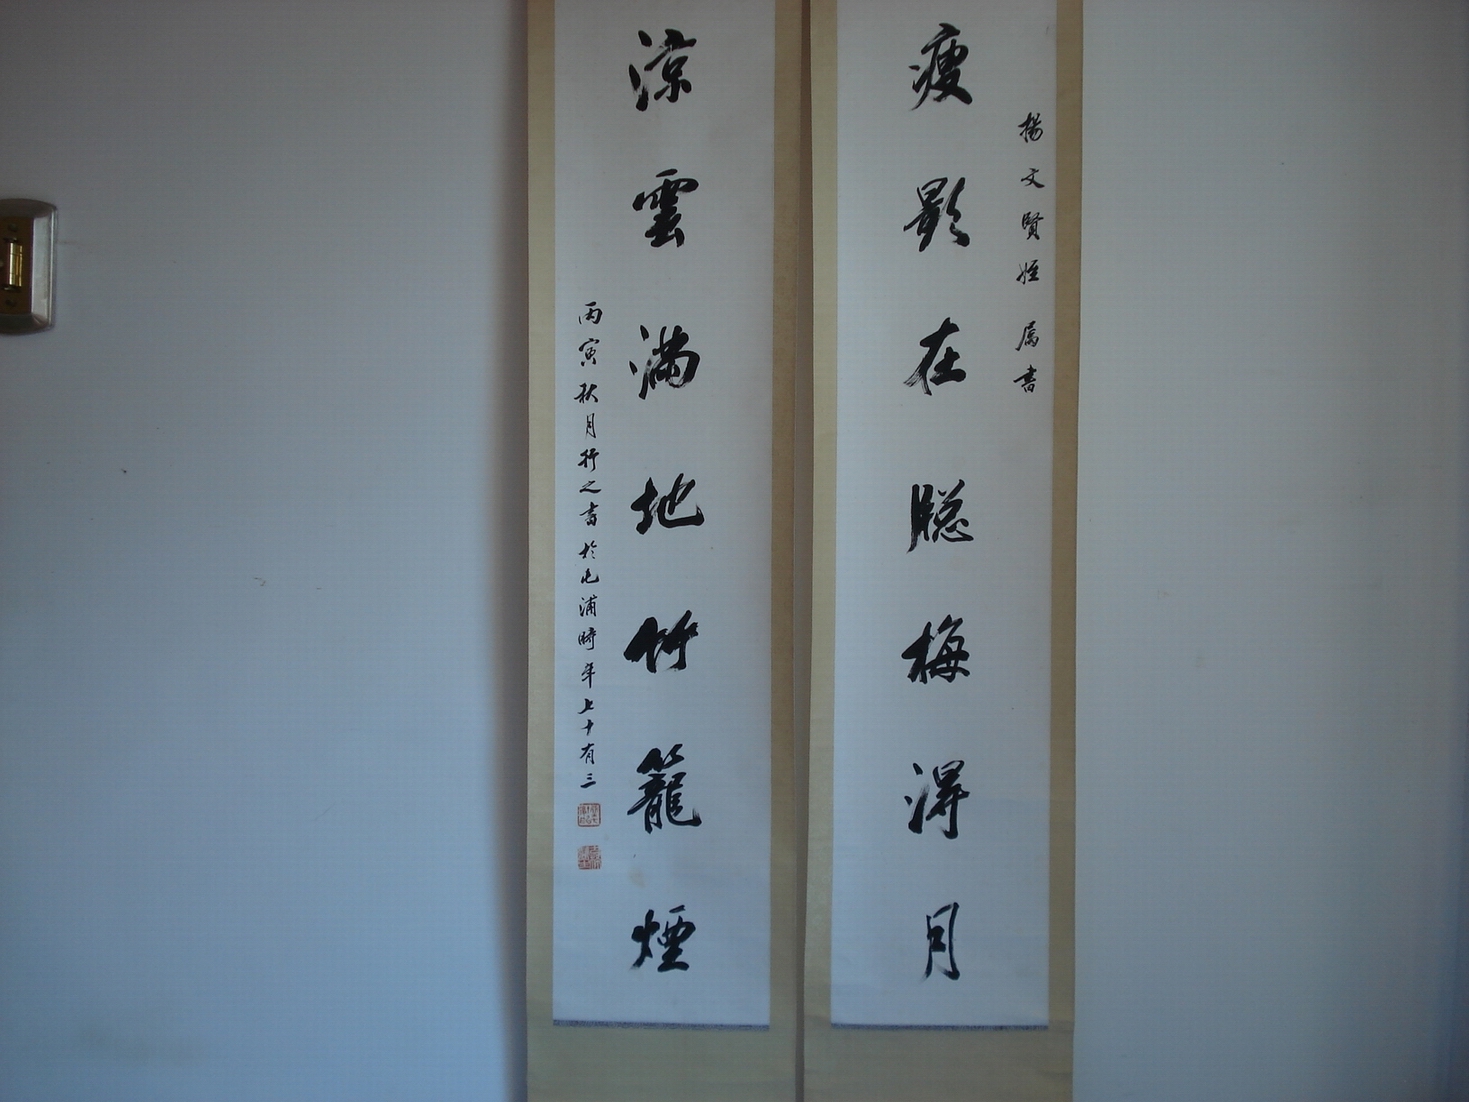 楊文賢姪屬書
瘦影在牕梅得月
涼雲滿地竹籠煙
丙寅秋月行之書於屯浦時年七十有三